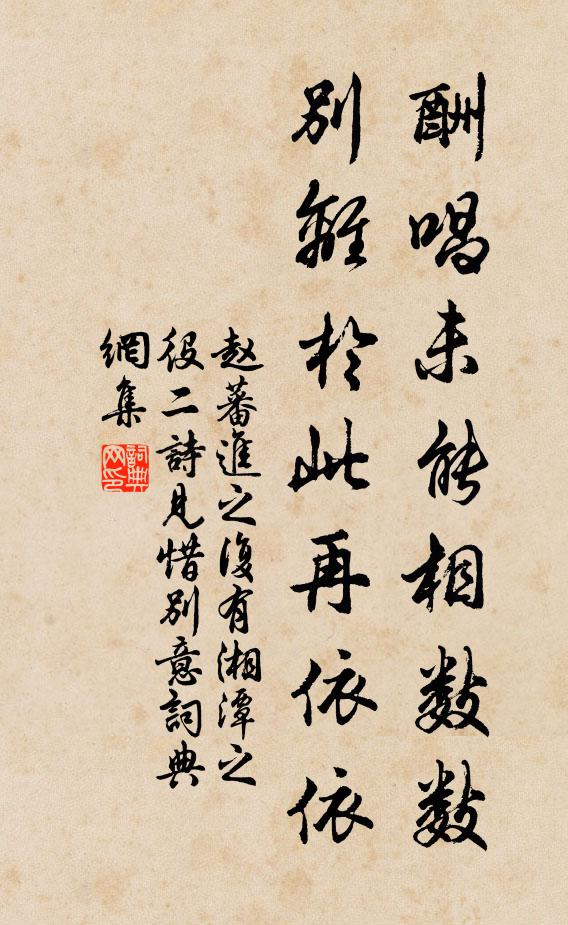 酬唱未能相数数
別離於此再依依
赵蕃進之復有湘潭之
役二詩見惜別意詞典
網集
詞典网印